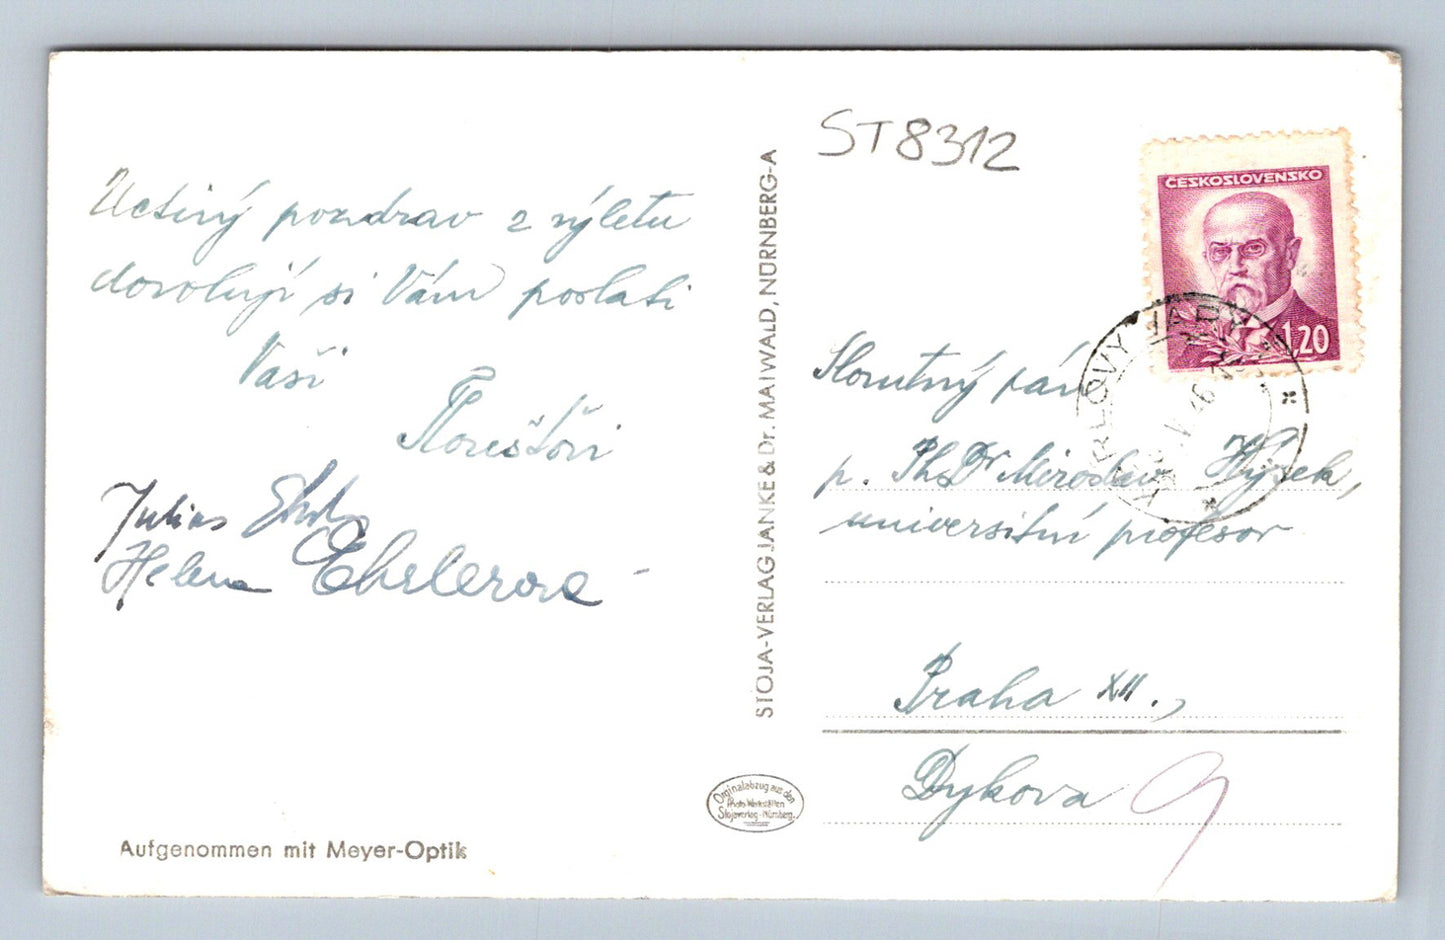 Uctivý pozdrav z výletu
dovolují si Vám poslati
Vaši
Julius
Helena Ehrlerová
Aufgenommen mit Meyer-Optik
STOJA-VERLAG JANKE & Dr. MAIWALD, NÜRNBERG-A
Orginalabzug aus den
Photo-Werkstätten
Stojaverlag-Nürnberg.
ST8312
ČESKOSLOVENSKO
1,20
KARLOVY VARY
Slovutný pán
p. PhDr Miroslav Hýsek,
universitní profesor
Praha XII.,
Dykova 9